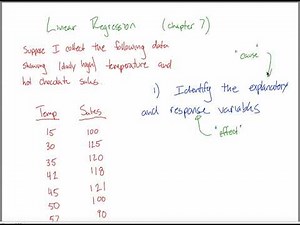 Linear Regression (chapter 7)
Suppose I collect the following data
showing (daily high) temperature and
hot chocolate sales.
"cause"
1) Identify the explanatory
and response variables
"effect"
Temp Sales
15 100
30 125
35 120
42 118
45 121
50 100
57 90